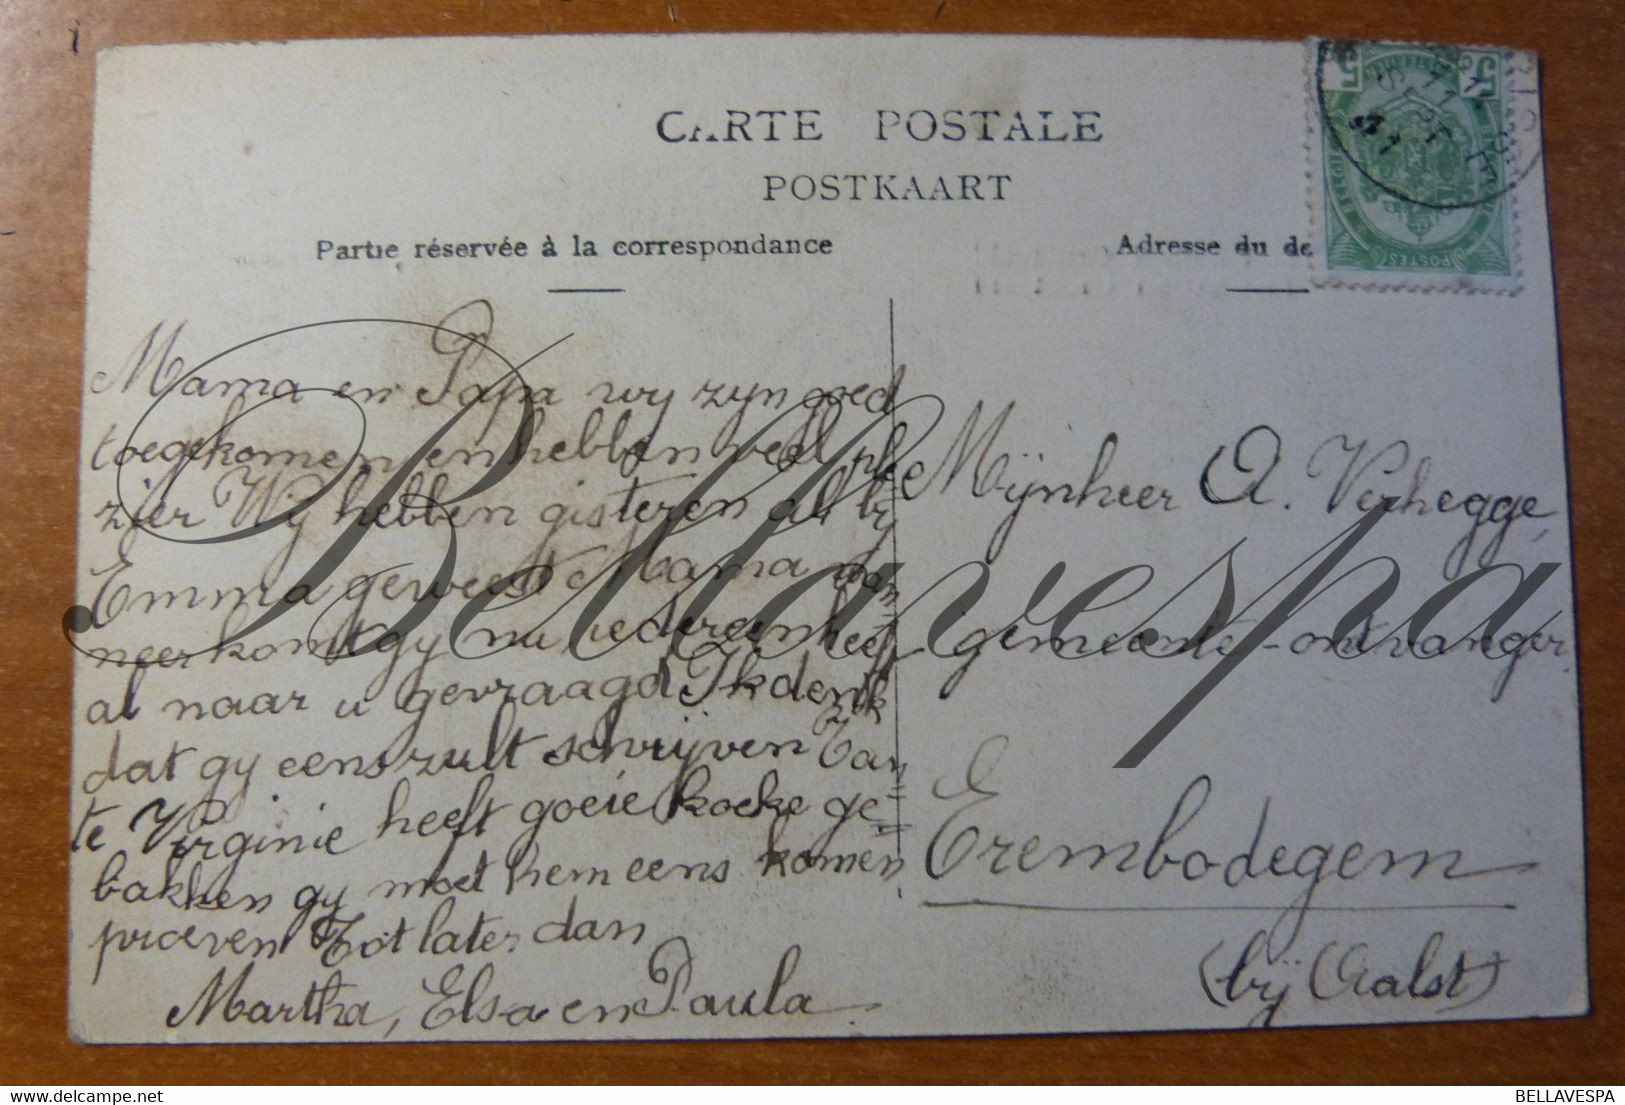 CARTE POSTALE
POSTKAART
Partie réservée à la correspondance
Adresse du de
Mama en Papa wy zyn goed
toegekomen en hebben veel ple
zier Wij hebben gisteren al by
Emma geweest Mama wan
neer komt gy nu iedereen heeft
al naar u gevraagd Ik denk
dat gy eens zult schrijven Tan
te Virginie heeft goeie koeke ge=
bakken gy moet hem eens komen
proeven Tot later dan
Martha, Elsa en Paula
Mijnheer A. Verhegge,
gemeente-ontvanger
Erembodegem
(bij Aalst)
5
5
POSTES
Bellavespa
BELLAVESPA